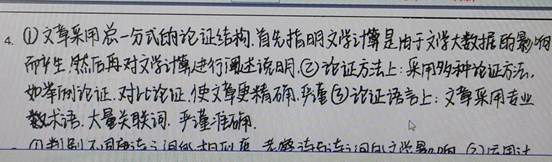 4. ①文章采用总一分式的论证结构.首先指明文学计算是由于文学大数据的影响
而产生,然后再对文学计算进行阐述说明.②论证方法上:采用多种论证方法,
如举例论证.对比论证,使文章更精确,严谨③论证语言上:文章采用专业
数术语.大量关联词.严谨准确.
①判别不同